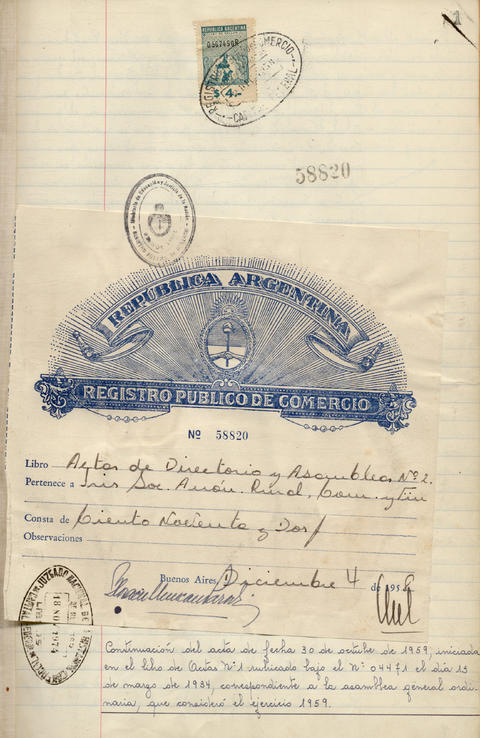 1
REPUBLICA ARGENTINA
$ 4
58820
REPUBLICA ARGENTINA
REGISTRO PUBLICO DE COMERCIO
Nº 58820
Libro Actas de Directorio y Asambleas Nº 2.
Pertenece a Iris Soc. Anón. Rural, Com. y Fin
Consta de Ciento Noventa y Dos
Observaciones
Buenos Aires, Diciembre 4 de 1959
18 NOV 1974
Continuación del acta de fecha 30 de octubre de 1959, iniciada
en el libro de Actas Nº 1 rubricado bajo el Nº 04471 el día 13
de marzo de 1934, correspondiente a la asamblea general ordi-
naria, que consideró el ejercicio 1959.